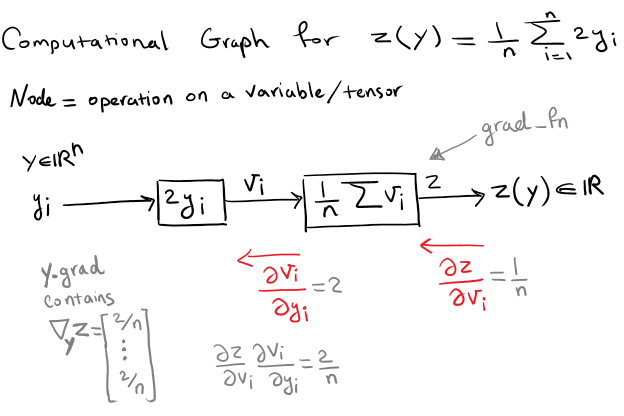 Computational Graph for z(y) = 1/n Σ_{i=1}^{n} 2y_i
Node = operation on a variable/tensor
grad_fn
y∈ℝⁿ
y_i → 2y_i v_i → 1/n Σ v_i z → z(y) ∈ ℝ
∂v_i/∂y_i = 2
∂z/∂v_i = 1/n
y.grad
contains
∇_y z = [2/n ⋮ 2/n]
∂z/∂v_i ∂v_i/∂y_i = 2/n